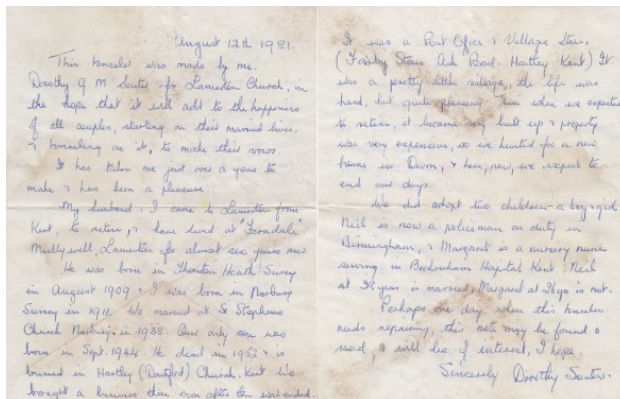 August 12th 1981.
This kneeler was made by me.
Dorothy G M Souter for Lamerton Church, in
the hope that it will add to the happiness
of all couples, starting on their married lives.
& kneeling on it, to make their vows.
It has taken me just over a year to
make & has been a pleasure.
My husband & I came to Lamerton from
Kent, to retire, & have lived at "Faradale"
Lamerton for almost six years now.
He was born in Thornton Heath Surrey
in August 1909 & I was born in Norbury
Surrey in 1911. We married at St Stephens
Church Norbury in 1938. Our only son was
born in Sept. 1944. He died in 1952 & is
buried in Hartley (Dartford) Church. Kent. We
bought a business there soon after the war ended.
It was a Post Office & Village Store.
(Fairby Stores Ash Road. Hartley Kent) It
was a pretty little village, the life was
hard, but quite pleasing. Then when we expected
to retire, it became very built up & property
was very expensive, so we hunted for a new
home in Devon, & here, now, we expect to
end our days.
We did adopt two children - a boy & girl.
Neil is now a policeman on duty in
Birmingham, & Margaret is a nursery nurse
serving in Beckenham Hospital Kent. Neil
at is married, Margaret at 26yrs is not.
Perhaps one day when this kneeler
needs repairing, this note may be found &
read, & will be of interest, I hope.
Sincerely Dorothy Souter.